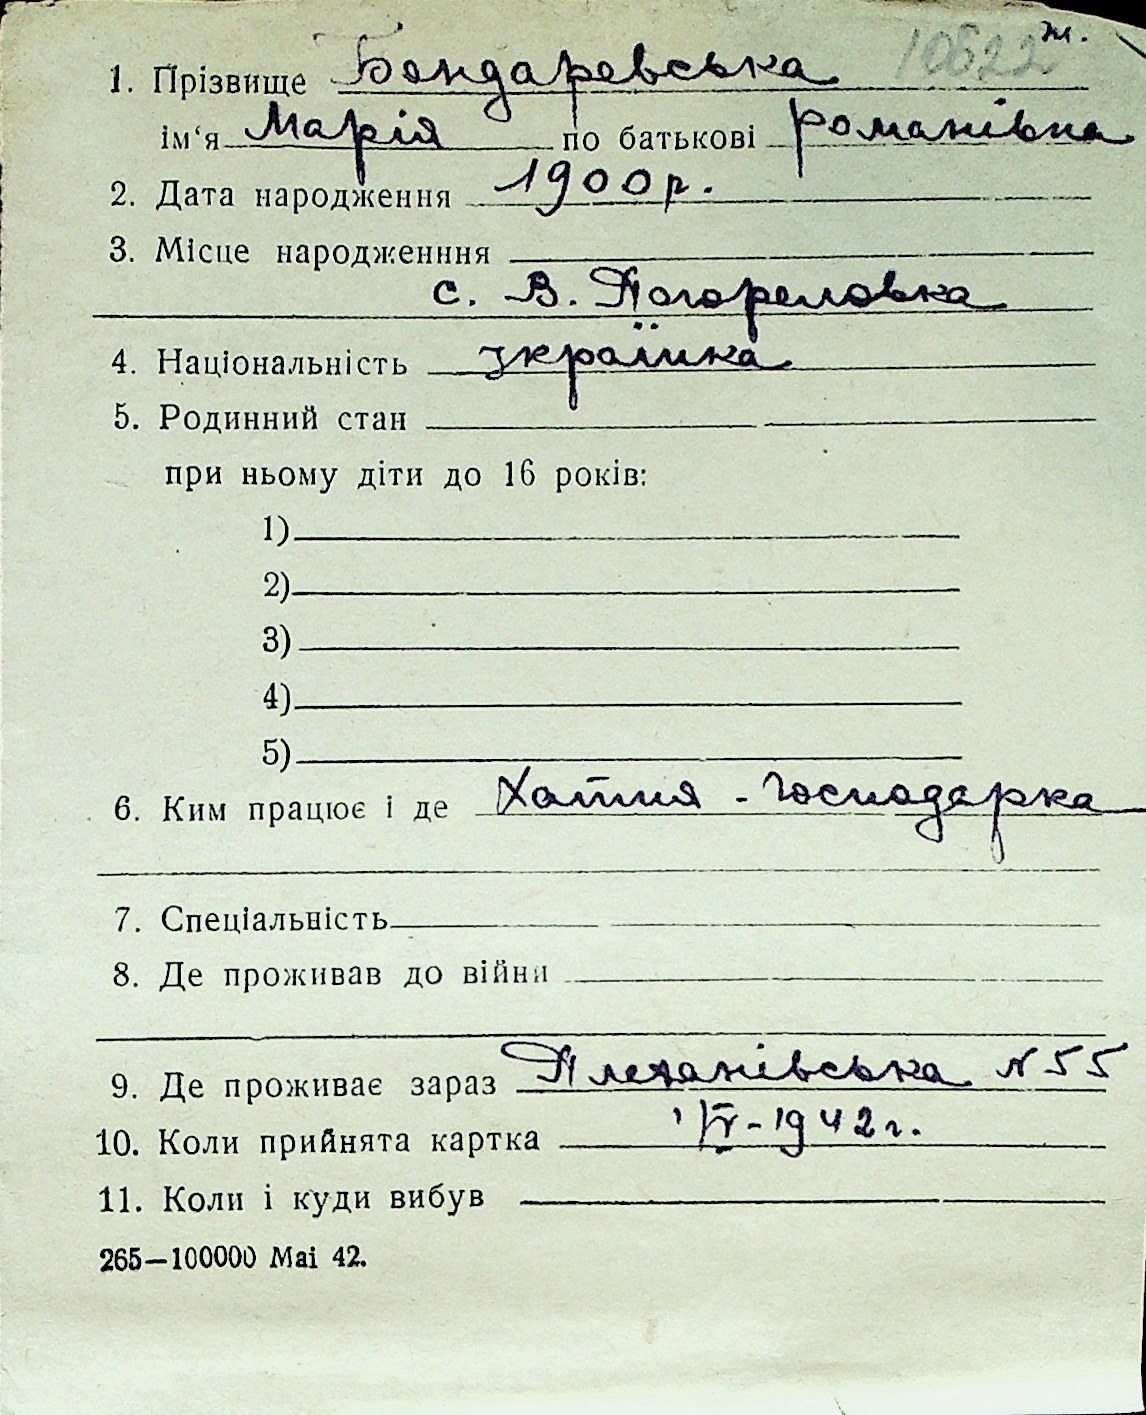 10622 ж.
1. Прізвище Бондаревська
ім'я Марія по батькові Романівна
2. Дата народження 1900 р.
3. Місце народженння
с. В. Погореловка
4. Національність українка
5. Родинний стан
при ньому діти до 16 років:
1)
2)
3)
4)
5)
6. Ким працює і де Хатня - господарка
7. Спеціальність
8. Де проживав до війни
9. Де проживає зараз Плеханівська N 55
10. Коли прийнята картка 1942 г.
11. Коли і куди вибув
265—100000 Mai 42.